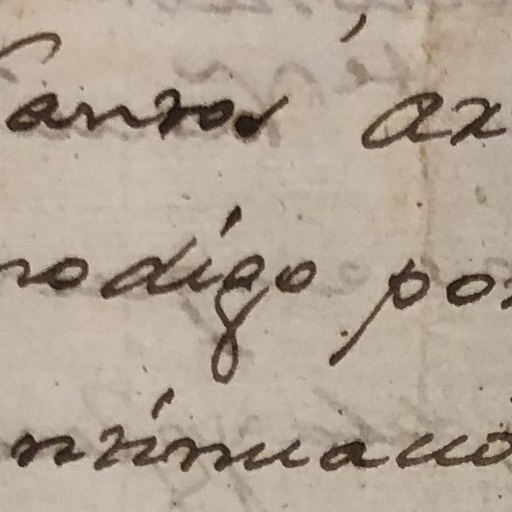 Santos ax
rodigo por
ntinuació